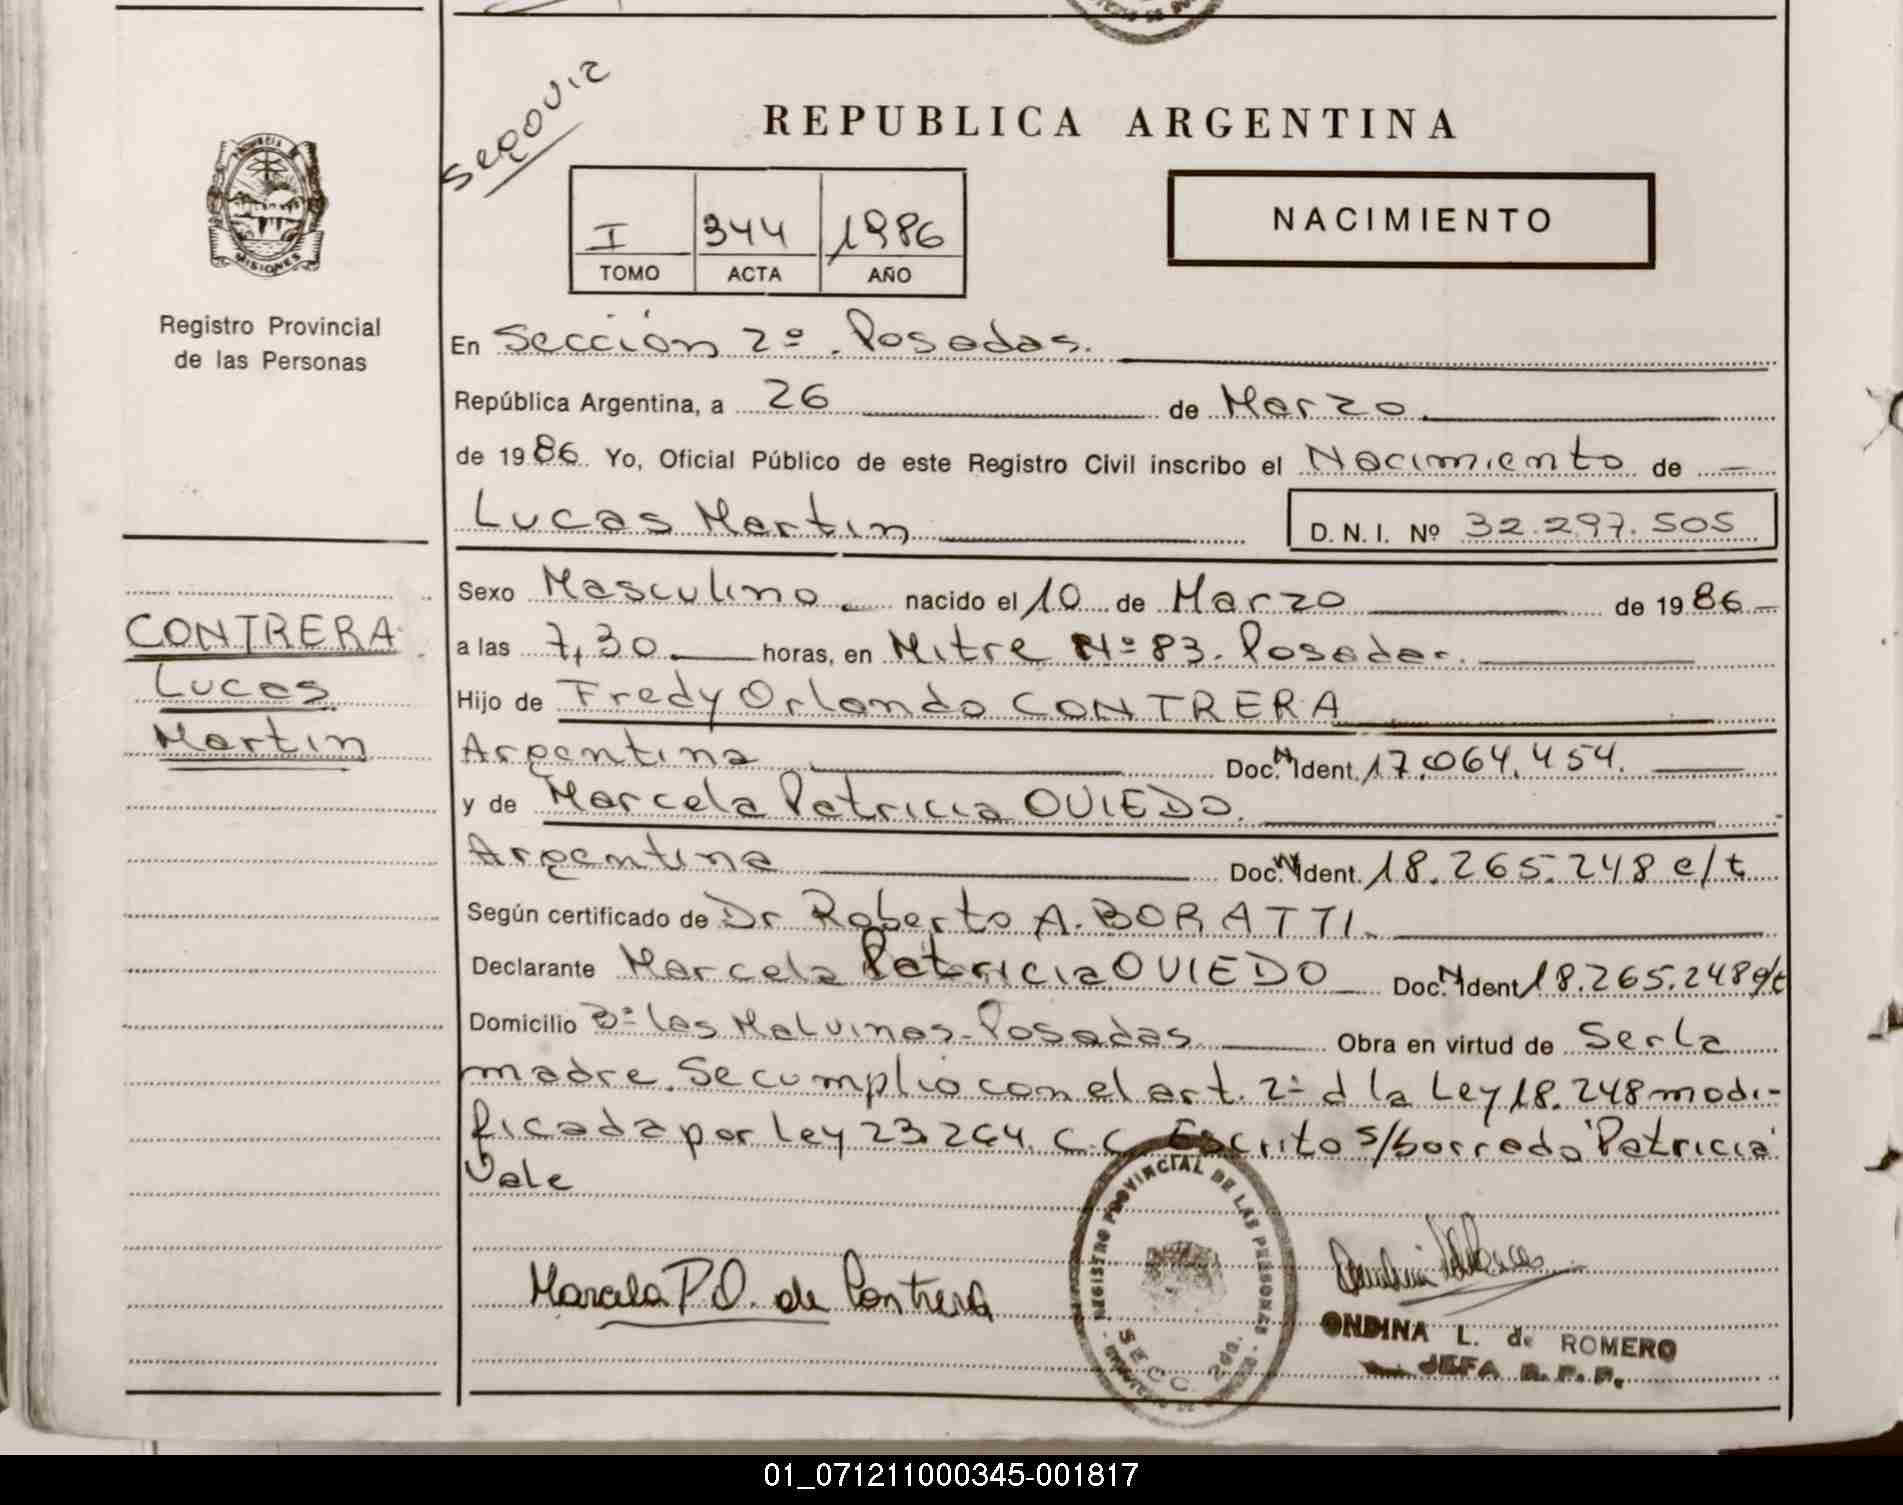 Segovia
REPUBLICA ARGENTINA
I 344 1986
TOMO ACTA AÑO
NACIMIENTO
MISIONES
Registro Provincial
de las Personas
En Sección 2º. Posadas.
República Argentina, a 26 de Marzo
de 1986. Yo, Oficial Público de este Registro Civil inscribo el Nacimiento de
Lucas Martin D. N. I. Nº 32.297.505
Sexo Masculino nacido el 10 de Marzo de 1986
CONTRERA
Lucas
Martin
a las 7,30 horas, en Mitre Nº 83. Posadas.
Hijo de Fredy Orlando CONTRERA
Argentina Doc. N Ident. 17.064.454.
y de Marcela Patricia OVIEDO.
Argentina Doc. N Ident. 18.265.248 e/t
Según certificado de Dr Roberto A. BORATTI.
Declarante Marcela Patricia OVIEDO Doc. N Ident 18.265.248 e/t
Domicilio Bº Las Malvinas-Posadas Obra en virtud de Ser la
madre. Se cumplio con el art. 2º d la Ley 18.248 modi-
ficada por Ley 23264. C.C. Escrito s/borrado "Patricia"
Vale
REGISTRO PROVINCIAL DE LAS PERSONAS
SECC. 2da.
Marcela P.O. de Contrera
ONDINA L. de ROMERO
JEFA R. P. P.
01_071211000345-001817